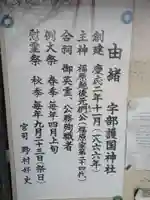 由緒 宇部護国神社
創建 慶応二年十一月(一八六六年)
主神 福原越後元僴公(福原家第二十四代)
合祀 御英霊 公務殉職者
例大祭 春季 毎年四月上旬
慰霊祭 秋季 毎年九月二十三日(祭日)
宮司 野村好史